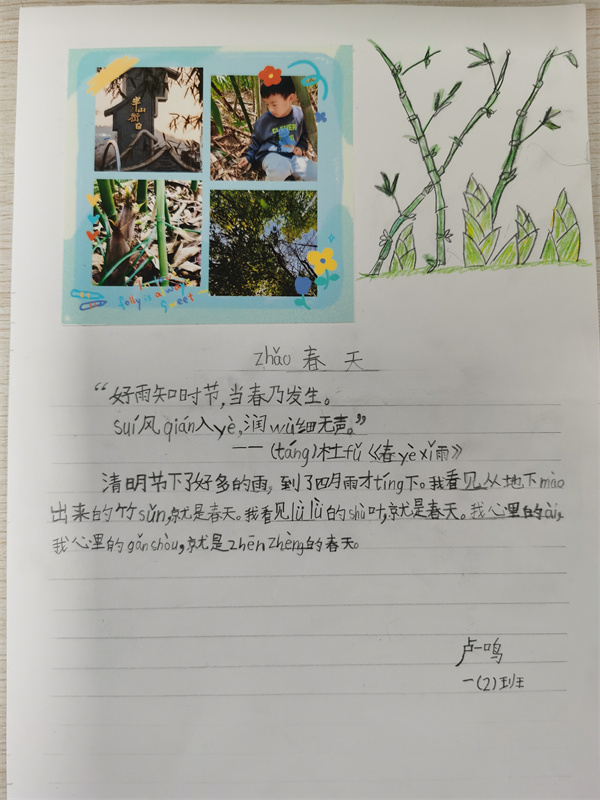 半山
folly is a way
sweet
zhǎo 春天
“好雨知时节,当春乃发生。
suí风qián入yè,润wù细无声。”
——(táng)杜fǔ《春yè xǐ雨》
清明节下了好多的雨,到了四月雨才tíng下。我看见从地下mào
出来的竹sǔn,就是春天。我看见lǜ lǜ的shù叶,就是春天。我心里的ài,
我心里的gǎnshòu,就是zhēn zhèng的春天。
卢一鸣
一(2)班